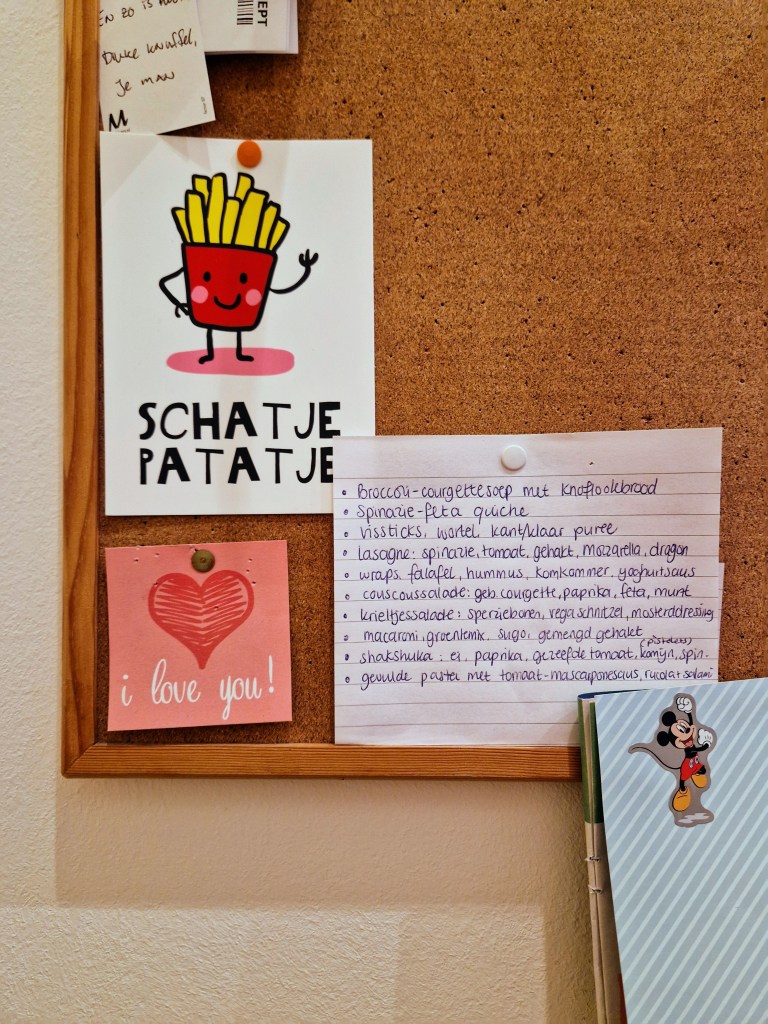 En zo is
Dikke knuffel,
je man
M
EPT
SCHATJE
PATATJE
i love you!
• Broccoli-courgettesoep met knoflookbrood
• Spinazie-feta quiche
• vissticks, wortel kant/klaar puree
• lasagne: spinazie, tomaat, gehakt, mozzarella, dragon
• wraps falafel, hummus, komkommer, yoghurtsaus
• couscoussalade: geb. courgette, paprika, feta, munt
• krieltjessalade: sperziebonen, vega schnitzel, mosterddressing
• macaroni, groentemix, sugo, gemengd gehakt
(pistolets)
• shakshuka: ei, paprika, gezeefde tomaat, komijn, spin.
• gevulde pasta met tomaat-mascarponesaus, rucola + salami